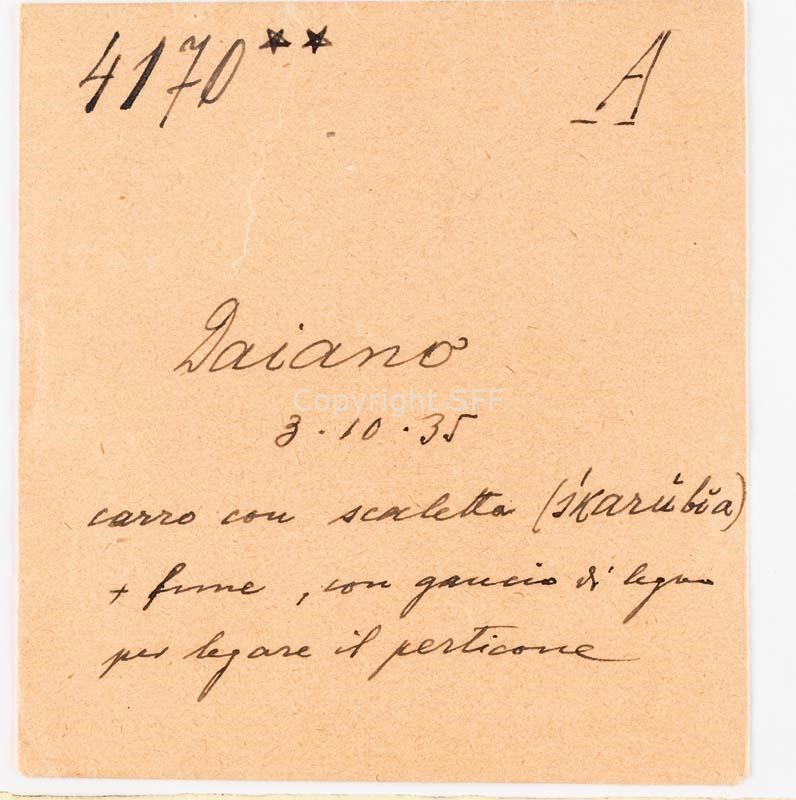 4170**
A
Daiano
Copyright SFF
3.10.35
carro con scaletta (śkarúbĭa)
+ fune, con gancio di legno
per legare il perticone